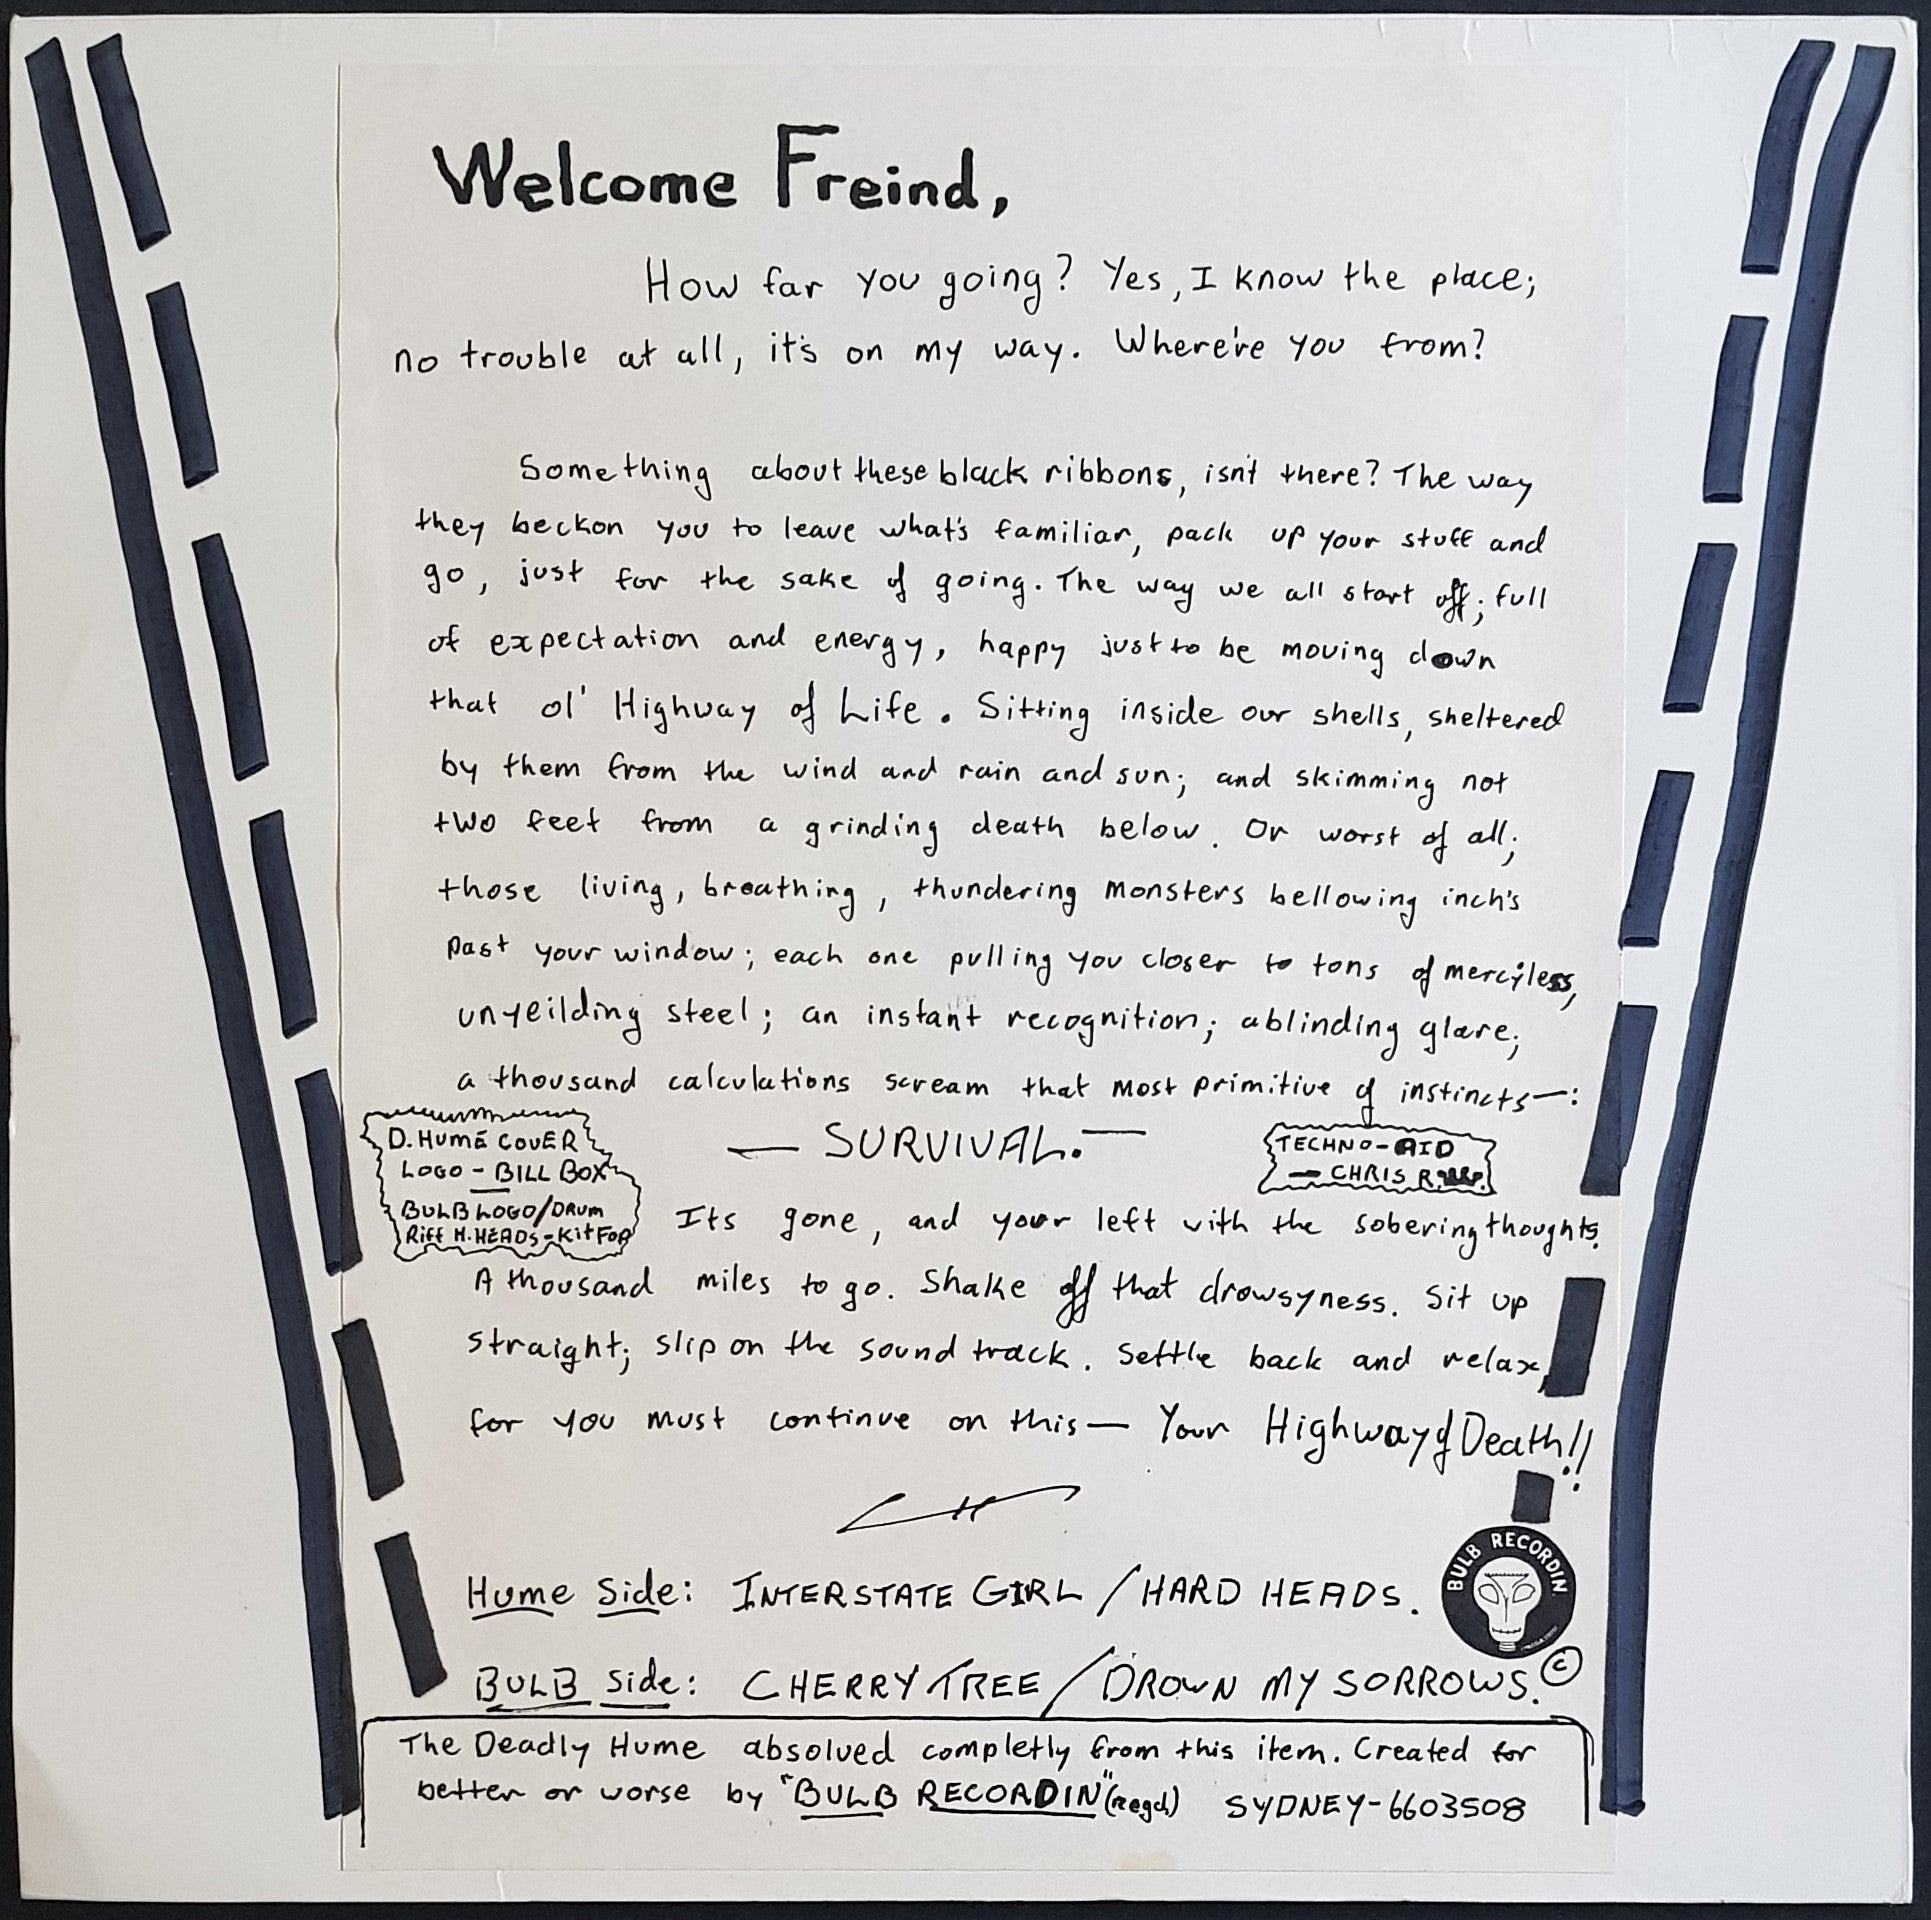 Welcome Freind,
How far you going? Yes, I know the place;
no trouble at all, it's on my way. Where've you from?
Something about these black ribbons, isn't there? The way
they beckon you to leave what's familiar, pack up your stuff and
go, just for the sake of going. The way we all start off; full
of expectation and energy, happy just to be moving down
that ol' Highway of Life. Sitting inside our shells, sheltered
by them from the wind and rain and sun; and skimming not
two feet from a grinding death below. Or worst of all;
those living, breathing, thundering monsters bellowing inch's
past your window; each one pulling you closer to tons of merciless,
unyeilding steel; an instant recognition; a blinding glare;
a thousand calculations scream that most primitive of instincts—:
— SURVIVAL. —
D. HUME COVER
LOGO - BILL BOX
BULB LOGO/DRUM
Riff H. HEADS - Kit FOP
TECHNO-AID
— CHRIS R.
Its gone, and your left with the sobering thoughts.
A thousand miles to go. Shake off that drowsyness. Sit up
straight; slip on the sound track. Settle back and relax,
for you must continue on this — Your Highway of Death!!
Hume Side: INTERSTATE GIRL / HARD HEADS.
BULB RECORDIN
BULB Side: CHERRY TREE / DROWN MY SORROWS. ©
The Deadly Hume absolved completly from this item. Created for
better or worse by "BULB RECORDIN" (regd) SYDNEY - 6603508